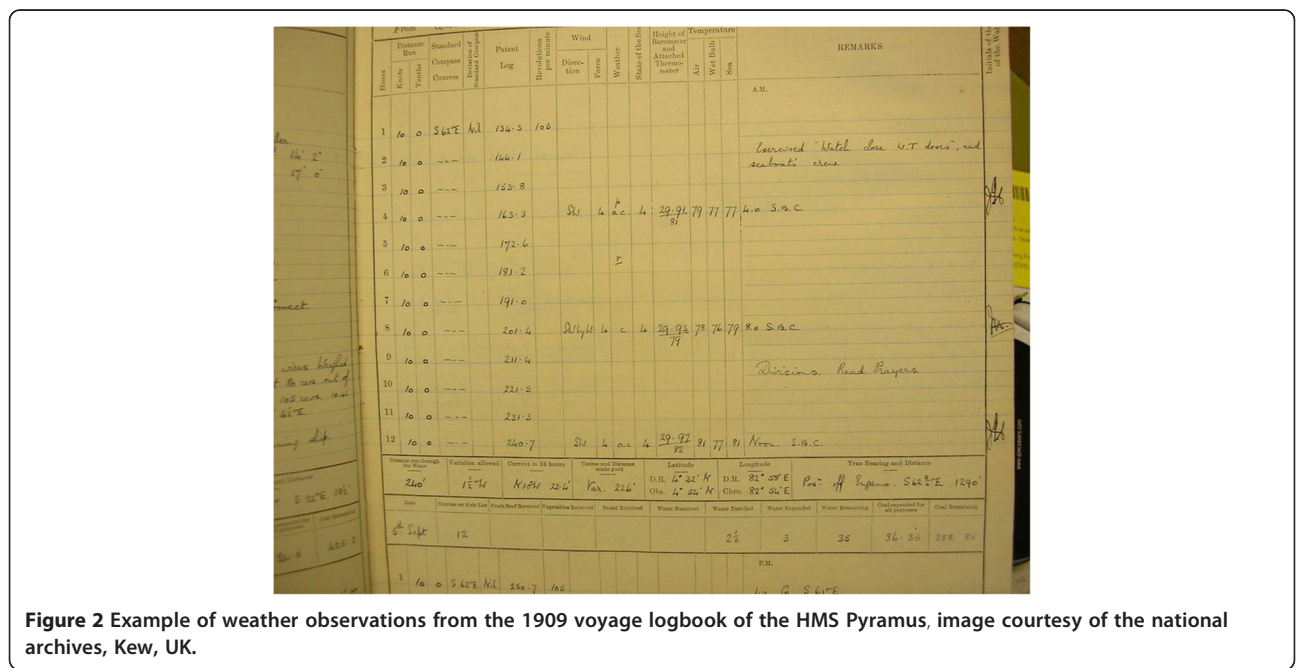 Distance Run
Standard Compass Courses
Deviation of Standard Compass
Patent Log
Revolutions per minute
Wind
Weather
State of the Sea
Height of Barometer and Attached Thermometer
Temperature
REMARKS
Initials of the
Hours
Knots
Tenths
Direction
Force
Air
Wet Bulb
Sea
A.M.
1 10 0 S62°E Nil 134.3 105
2 10 0 --- 144.1 Exercised "Watch close W.T doors", and
seaboats crew.
3 10 0 --- 153.8
4 10 0 --- 163.3 SW 4 o.c. p 4 29.91 79 77 77 4.0 S.B.C.
81
5 10 0 --- 172.6
6 10 0 --- 181.2 r
7 10 0 --- 191.0
8 10 0 --- 201.4 SWbyW 4 c 4 29.93 78 76 79 8.0 S.B.C.
79
9 10 0 --- 211.4 Divisions. Read Prayers.
10 10 0 --- 221.5
11 10 0 --- 231.3
12 10 0 --- 240.7 SW 4 o.c 4 29.97 81 77 81 Noon. S.B.C.
82
Distance run through the Water
Variation allowed
Current in 24 hours
Course and Distance made good
Latitude
Longitude
True Bearing and Distance
240' 1½°W 22.4' Var. 226' D.R. 4° 32' N D.R. 82° 58' E
Obs. 4° 54' N Chro. 82° 54' E S62¾°E. 1290'
Date
Number on Sick List
Fresh Beef Received
Vegetables Received
Bread Received
Water Received
Water Distilled
Water Expended
Water Remaining
Coal expended for all purposes
Coal Remaining
Sept 12 2½ 3 35 36.35
P.M.
1 10 0 S62°E Nil 250.7 105
Figure 2 Example of weather observations from the 1909 voyage logbook of the HMS Pyramus, image courtesy of the national
archives, Kew, UK.